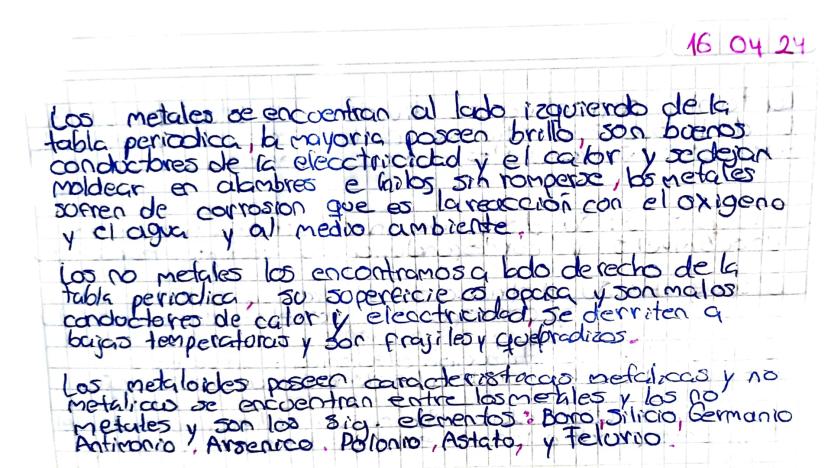 16 04 24
Los metales se encuentran al lado izquierdo de la
tabla periodica, la mayoria poseen brillo, son buenos
conductores de la elecctricidad y el calor y se dejan
moldear en alambres e hilos sin romperse, los metales
sofren de corrosion que es la reacción con el oxigeno
y el agua y al medio ambiente.
Los no metales los encontramos a lado derecho de la
tabla periodica, su supereficie es opaca y son malos
conductores de calor y eleactricidad, se derriten a
bajas temperaturas y son frajiles y quepradizos.
Los metaloides poseen caracteristacas metalicas y no
metalicas se encuentran entre los metales y los no
metales y son los sig. elementos: Boro, Silicio, Germanio
Antimonio, Arsenico, Polonio, Astato, y Telurio.